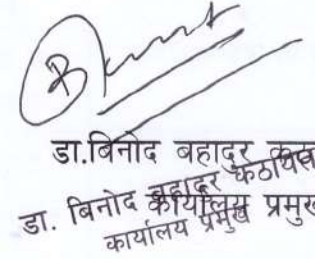 डा.बिनोद बहादुर
डा. बिनोद बहादुर
कार्यालय प्रमुख
कार्यालय प्रमुख